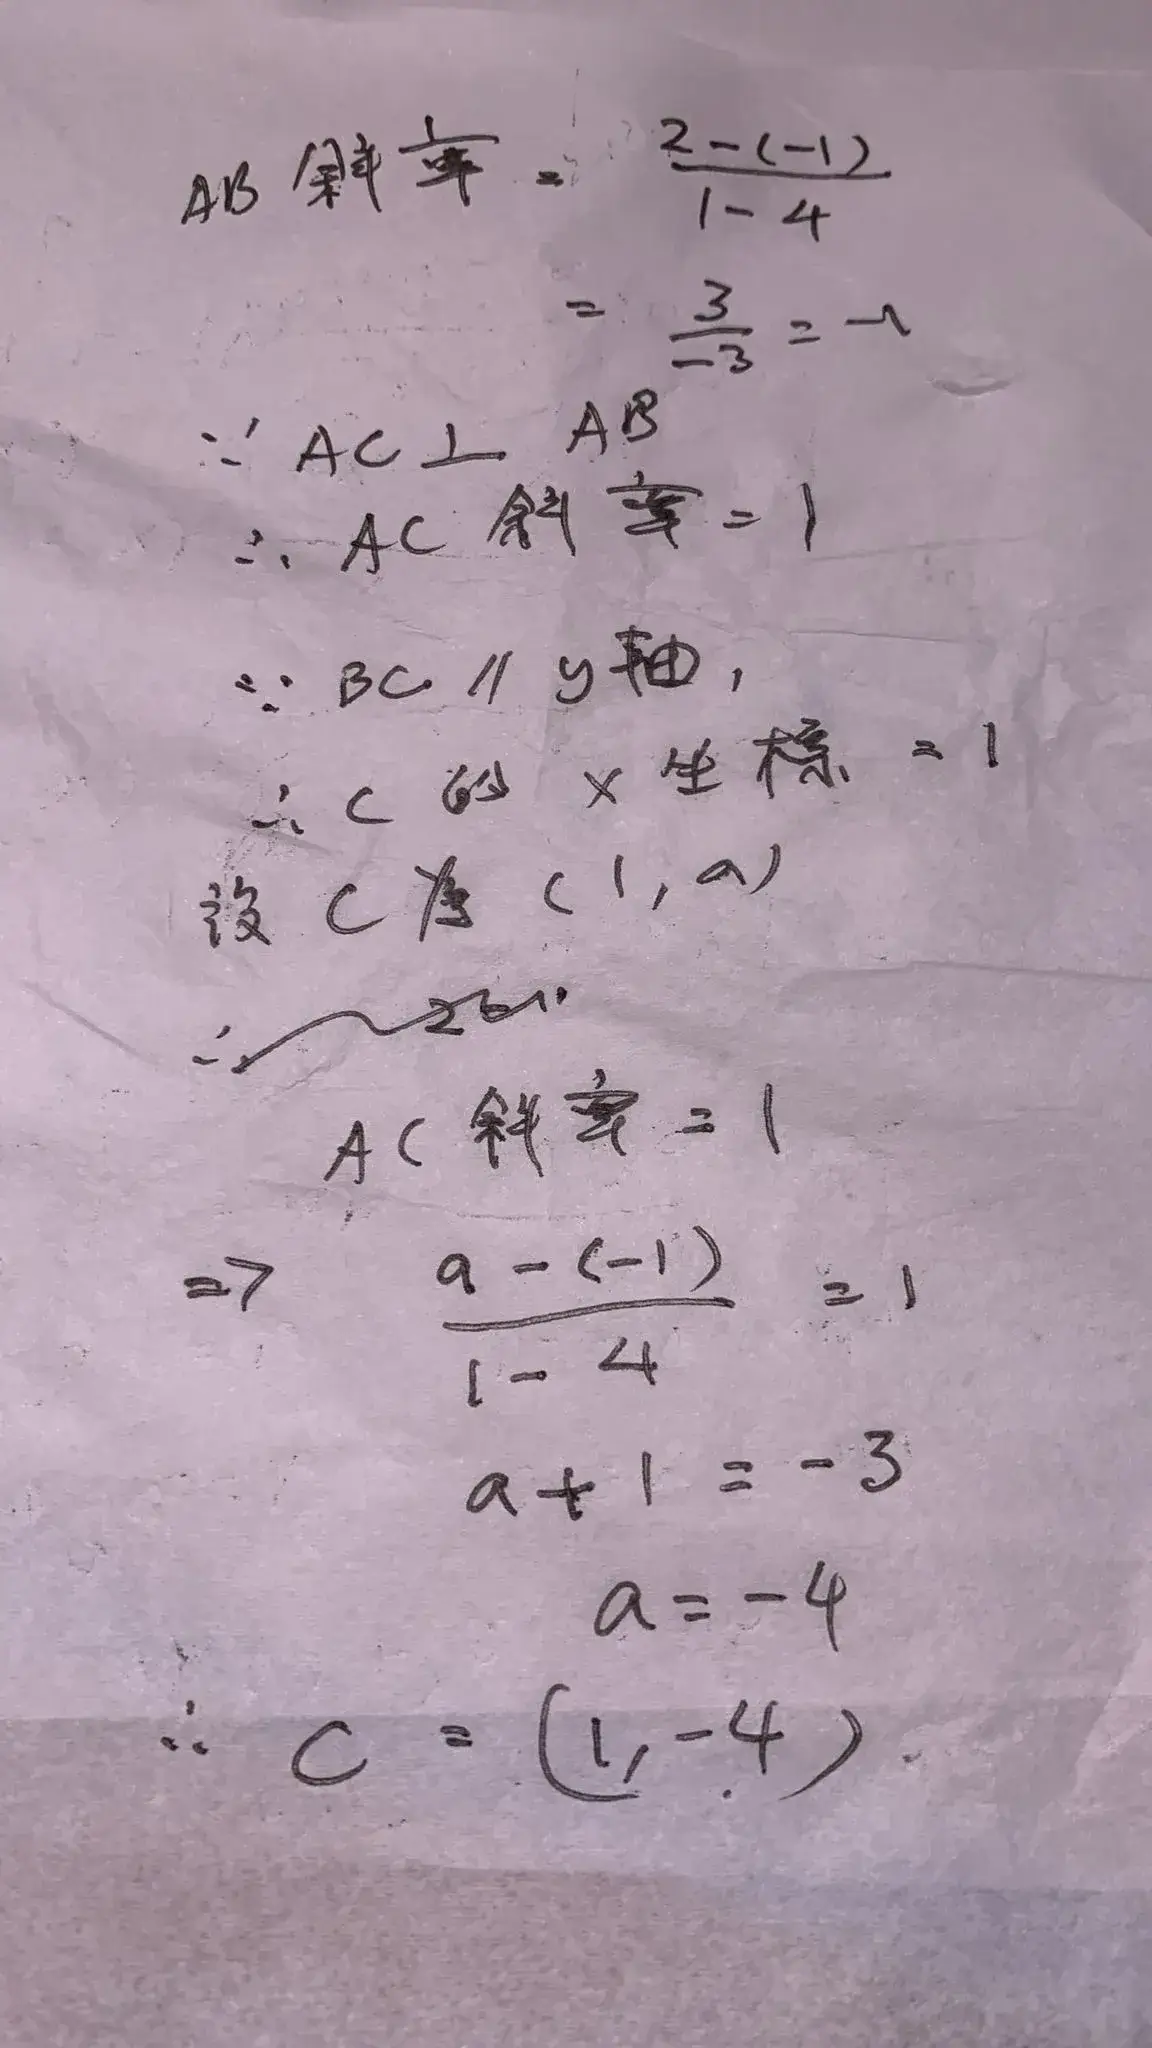 AB 斜率 = 2-(-1) / 1-4
= 3 / -3 = -1
∵ AC ⊥ AB
∴ AC 斜率 = 1
∵ BC // y軸,
∴ C 的 x 坐標 = 1
設 C 為 (1, a)
∴
AC 斜率 = 1
=> a-(-1) / 1-4 = 1
a + 1 = -3
a = -4
∴ C = (1, -4).